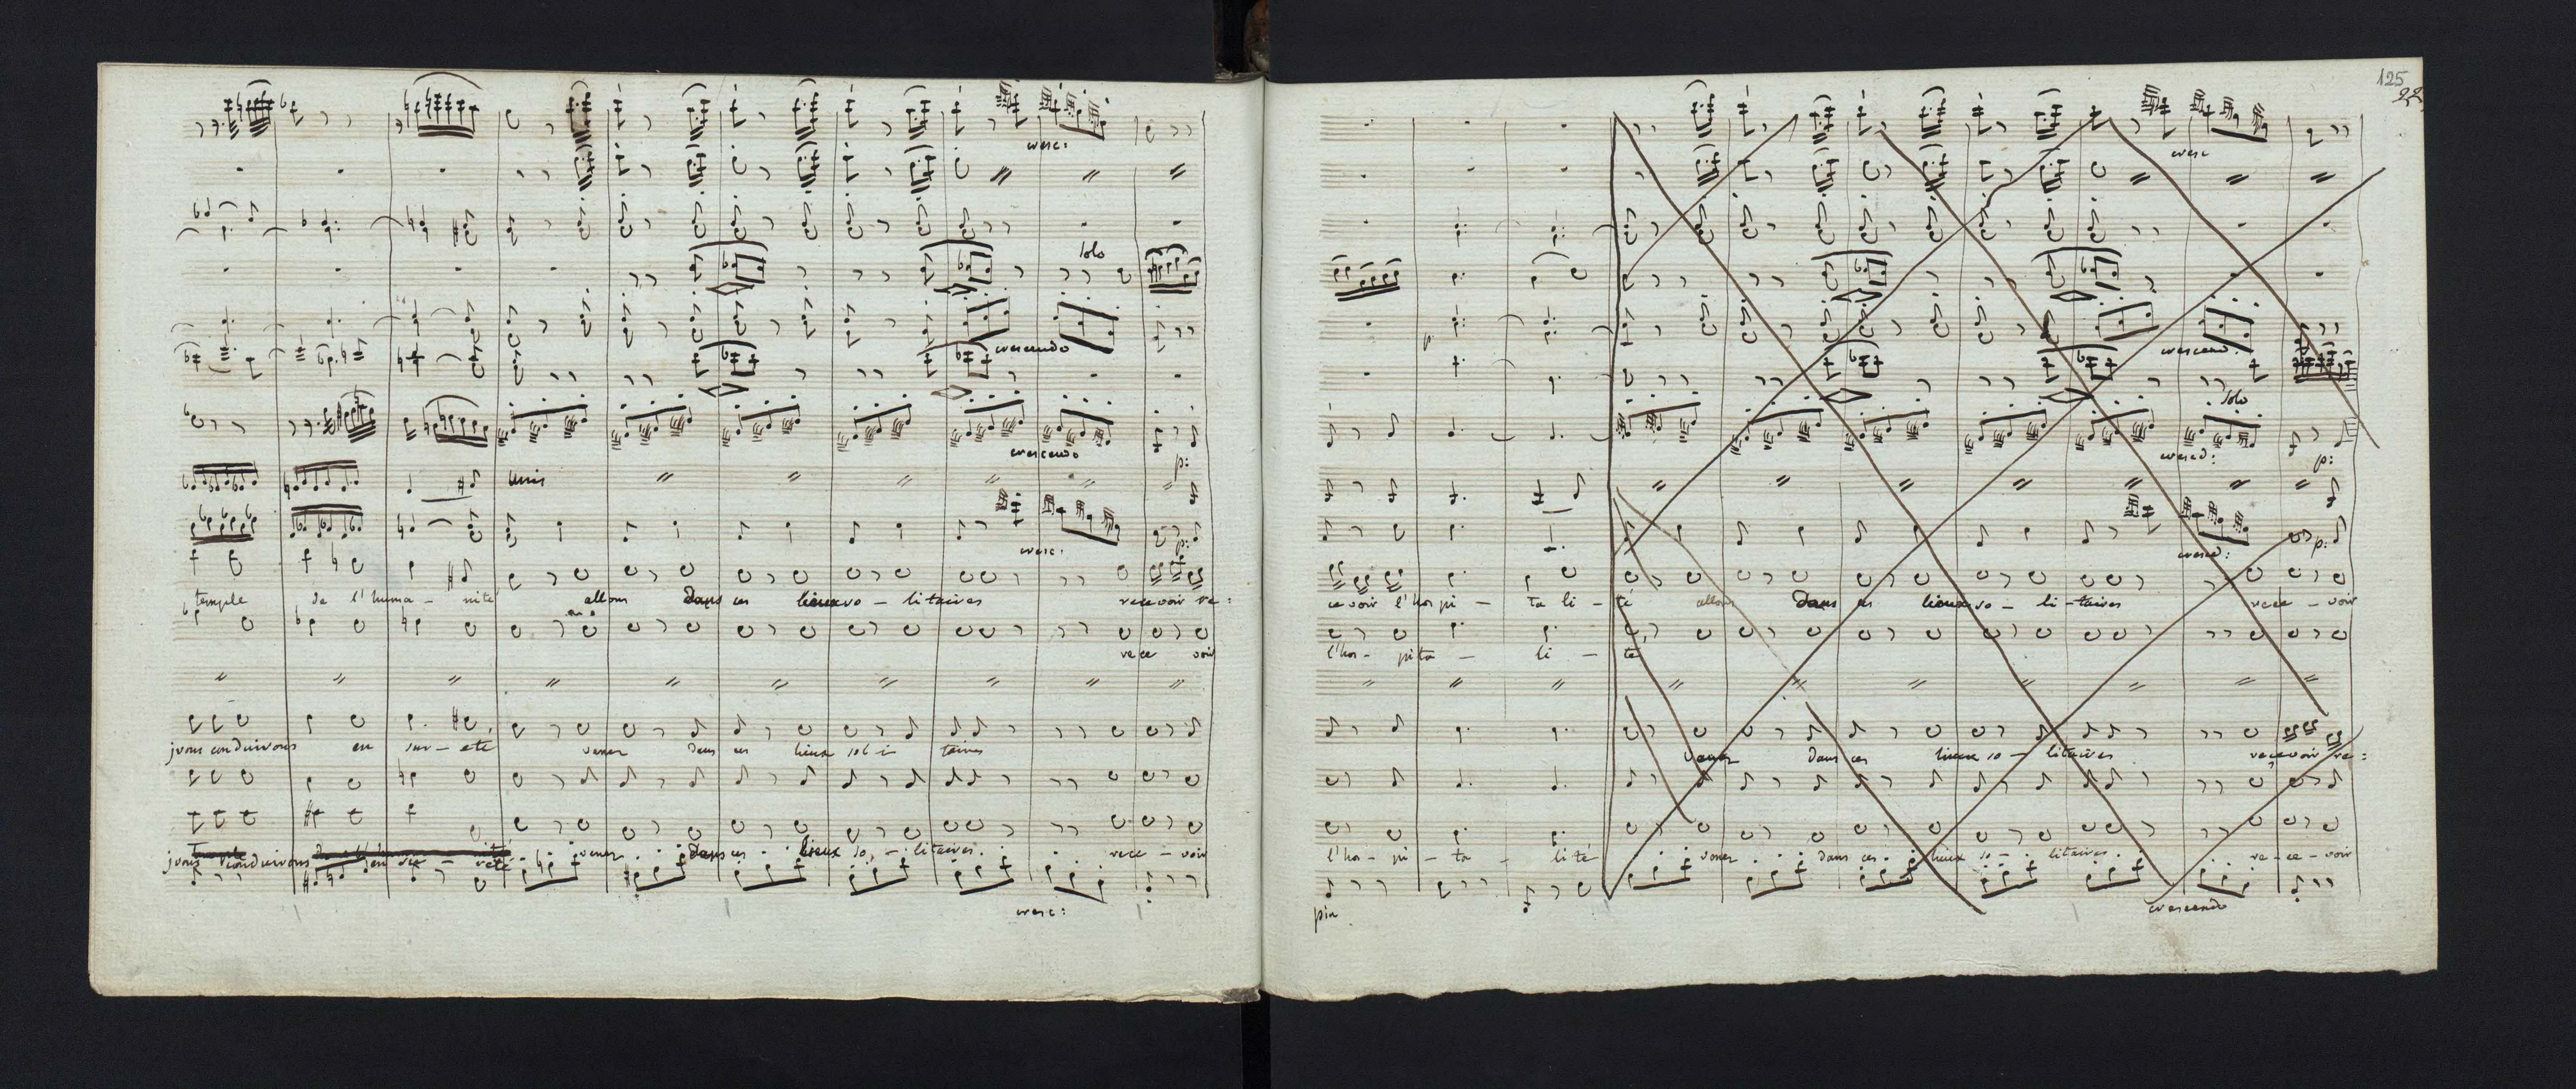 cresc:
solo
crescendo
crescendo
p:
unis
cresc:
p:
temple de l'huma - nité allons dans ces lieux so - litaires recevoir re:
rece voir
jvous conduirons en sur - eté venez dans ces lieux soli taires
jvous conduirons en su - reté venez dans ces lieux so - litaires rece - voir
cresc:
125
22
cresc
crescend.
solo
cresed:
p:
cresed:
p:
cevoir l'hospi - ta li - té allons dans ces lieux so - li - taires rece - voir
l'hos - pita - li - té
venez dans ces lieux so - litaires recevoir re:
l'ho - pi - ta - lité venez dans ces lieux so - litaires re - ce - voir
pia
crescendo